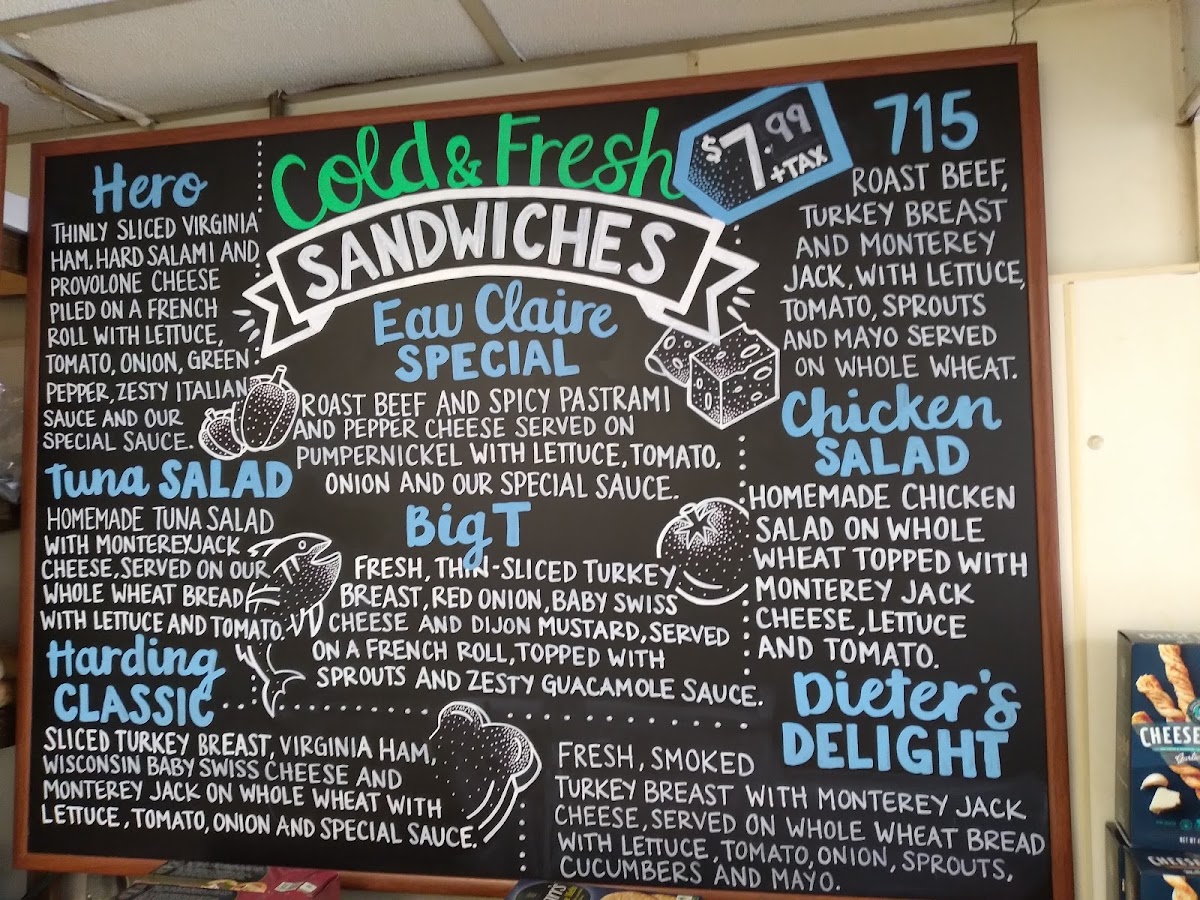 Cold & Fresh
SANDWICHES
$7.99
+TAX
Hero
THINLY SLICED VIRGINIA
HAM, HARD SALAMI AND
PROVOLONE CHEESE
PILED ON A FRENCH
ROLL WITH LETTUCE,
TOMATO, ONION, GREEN
PEPPER, ZESTY ITALIAN
SAUCE AND OUR
SPECIAL SAUCE.
Tuna SALAD
HOMEMADE TUNA SALAD
WITH MONTEREY JACK
CHEESE, SERVED ON OUR
WHOLE WHEAT BREAD
WITH LETTUCE AND TOMATO.
Harding
CLASSIC
SLICED TURKEY BREAST, VIRGINIA HAM,
WISCONSIN BABY SWISS CHEESE AND
MONTEREY JACK ON WHOLE WHEAT WITH
LETTUCE, TOMATO, ONION AND SPECIAL SAUCE.
Eau Claire
SPECIAL
ROAST BEEF AND SPICY PASTRAMI
AND PEPPER CHEESE SERVED ON
PUMPERNICKEL WITH LETTUCE, TOMATO,
ONION AND OUR SPECIAL SAUCE.
Big T
FRESH, THIN-SLICED TURKEY
BREAST, RED ONION, BABY SWISS
CHEESE AND DIJON MUSTARD, SERVED
ON A FRENCH ROLL, TOPPED WITH
SPROUTS AND ZESTY GUACAMOLE SAUCE.
715
ROAST BEEF,
TURKEY BREAST
AND MONTEREY
JACK, WITH LETTUCE,
TOMATO, SPROUTS
AND MAYO SERVED
ON WHOLE WHEAT.
Chicken
SALAD
HOMEMADE CHICKEN
SALAD ON WHOLE
WHEAT TOPPED WITH
MONTEREY JACK
CHEESE, LETTUCE
AND TOMATO.
Dieter's
DELIGHT
FRESH, SMOKED
TURKEY BREAST WITH MONTEREY JACK
CHEESE, SERVED ON WHOLE WHEAT BREAD
WITH LETTUCE, TOMATO, ONION, SPROUTS,
CUCUMBERS AND MAYO.
CHEESE